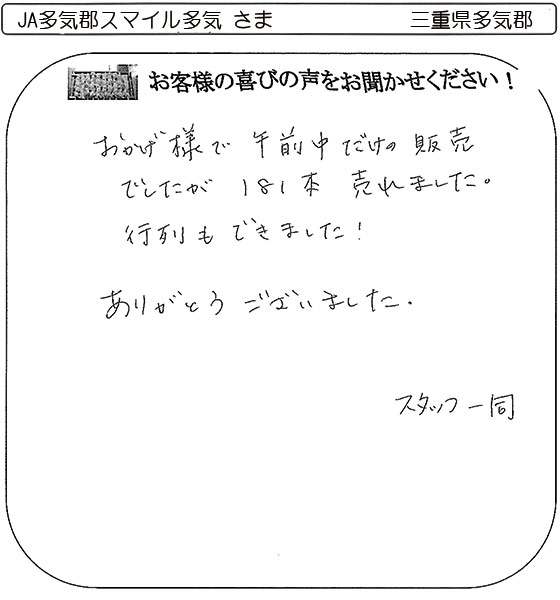 JA多気郡スマイル多気 さま 三重県多気郡
お客様の喜びの声をお聞かせください！
おかげ様で 午前中だけの 販売
でしたが 181本 売れました。
行列も できました！
ありがとう ございました.
スタッフ一同